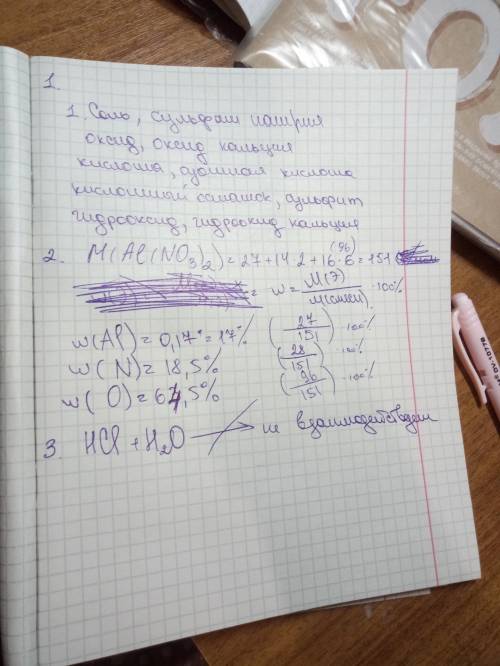 1.
1. Соль, сульфат натрия
оксид, оксид кальция
кислота, азотная кислота
кислотный остаток, сульфит
гидрооксид, гидрооксид кальция
(96)
2. M(Al(NO3)2) = 27+14·2+16·6=151
= w = M(Э) / M(смеси) · 100%
w(Al) = 0,17 = 17% (27/151) · 100%
w(N) = 18,5% (28/151) · 100%
w(O) = 64,5% (96/151) · 100%
3. HCl + H2O → не взаимодействуют